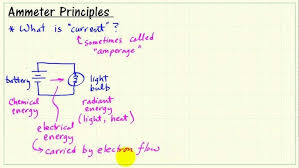 Ammeter Principles
* What is "current"?
sometimes called
"amperage"
battery
light
bulb
Chemical
energy
radiant
energy
(light, heat)
electrical
energy
carried by electron flow